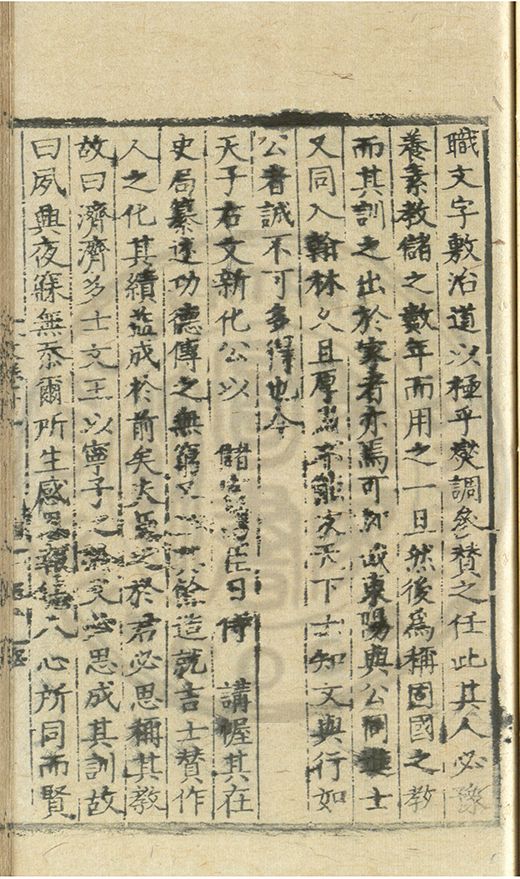 職文字敷治道以極乎燮調參贊之任此其人必豫
養素教儲之數年而用之一旦然後爲稱固國之教
而其訓之出於家者亦焉可誣哉東陽與公同進士
又同入翰林久且厚焉天下士知文與行如
公者誠不可多得也今
天子右文新化公以 儲 日侍 講幄其在
史局纂述功德傳之無窮 造就吉士贊作
人之化其績益成於前矣夫 之於君必思稱其教
故曰濟濟多士文王以寧子之 父必思成其訓故
曰夙興夜寐無忝爾所生感 人心所同而賢